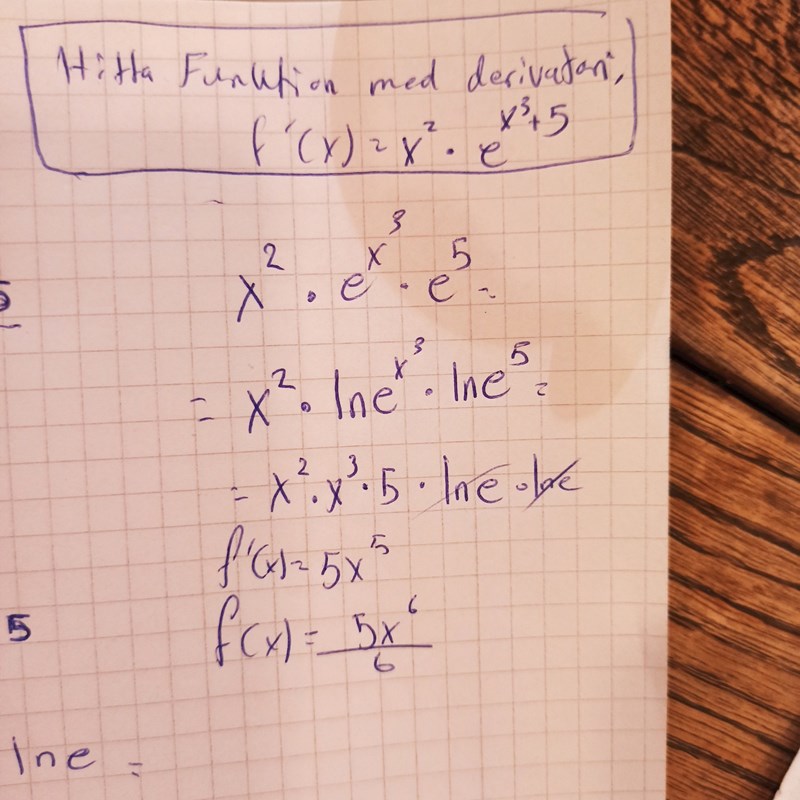 Hitta Funktion med derivatan,
f'(x) = x² · e^(x³+5)
x² · e^(x³) · e⁵ =
5
= x² · ln e^(x³) · ln e⁵ =
= x² · x³ · 5 · ln e · ln e
f'(x) = 5x⁵
f(x) = 5x⁶/6
5
ln e =